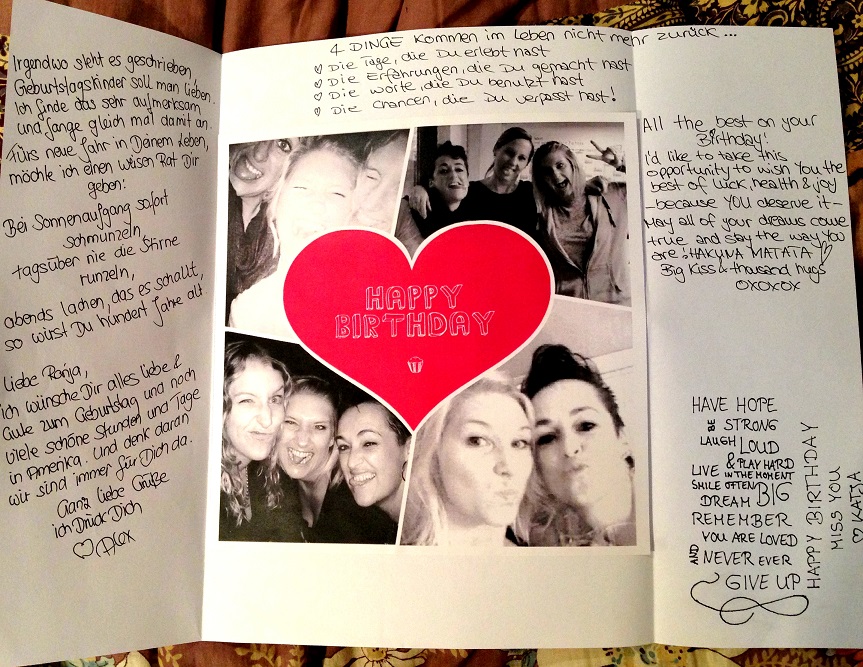 Irgendwo steht es geschrieben,
Geburtstagskinder soll man lieben.
Ich finde das sehr aufmerksam
und fange gleich mal damit an.
Fürs neue Jahr in Deinem Leben,
möchte ich einen weisen Rat Dir
geben:
Bei Sonnenaufgang sofort
schmunzeln,
tagsüber nie die Stirne
runzeln,
abends lachen, das es schallt,
so wirst Du hundert Jahre alt
Liebe Ranja,
ich wünsche Dir alles Liebe &
Gute zum Geburtstag und noch
viele schöne Stunden und Tage
in Amerika. Und denk daran
wir sind immer für Dich da.
Ganz liebe Grüße
ich Drück Dich
♡
4 DINGE kommen im Leben nicht mehr zurück ...
♡ Die Tage, die Du erlebt hast
♡ Die Erfahrungen, die Du gemacht hast
♡ Die Worte, die Du benutzt hast
♡ Die Chancen, die Du verpasst hast!
HAPPY
BIRTHDAY
All the best on your
Birthday!
I'd like to take this
opportunity to wish You the
best of luck, health & joy
- because YOU deserve it -
May all of your dreams come
true and stay the way You
are! HAKUNA MATATA
Big Kiss & thousand hugs
OXOXOX
HAVE HOPE
BE STRONG
LAUGH LOUD
& PLAY HARD
LIVE IN THE MOMENT
SMILE OFTEN DREAM BIG
REMEMBER
YOU ARE LOVED
AND NEVER EVER
GIVE UP
HAPPY BIRTHDAY
MISS YOU
♡ KATJA